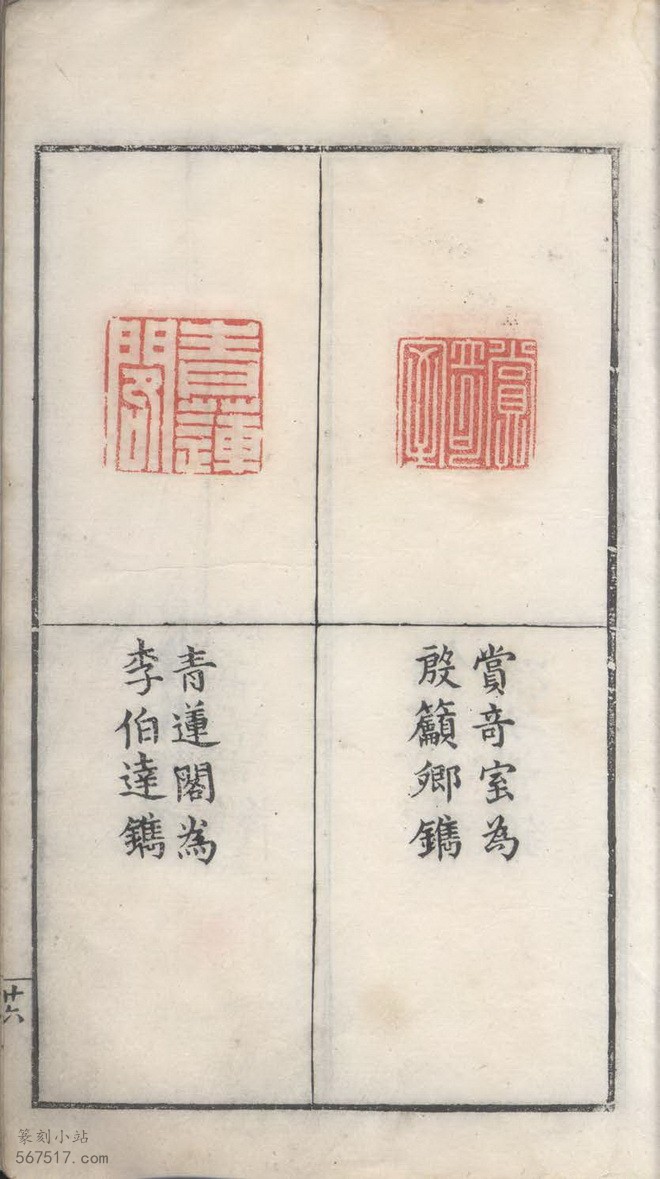 賞奇室
賞竒室為
殷籲卿鐫
青蓮閣
青蓮閣為
李伯達鐫
廿六
篆刻小站
567517.com